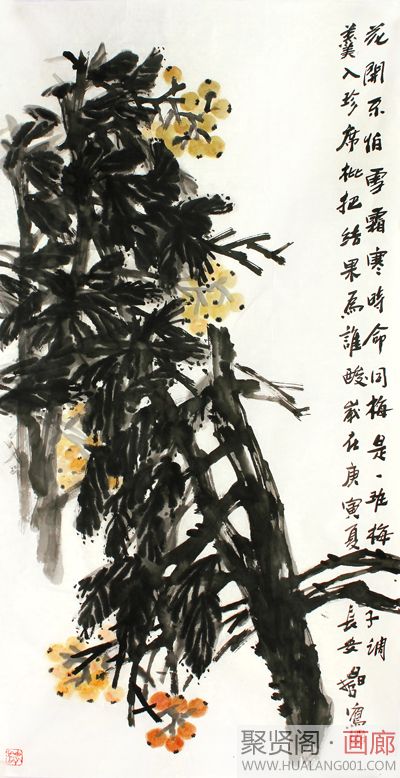 花開不怕雪霜寒時命同梅是一班梅子調
羹入珍席枇杷結果為誰酸歲在庚寅夏長安寫
聚贤阁·画廊
WWW.HUALANG001.COM